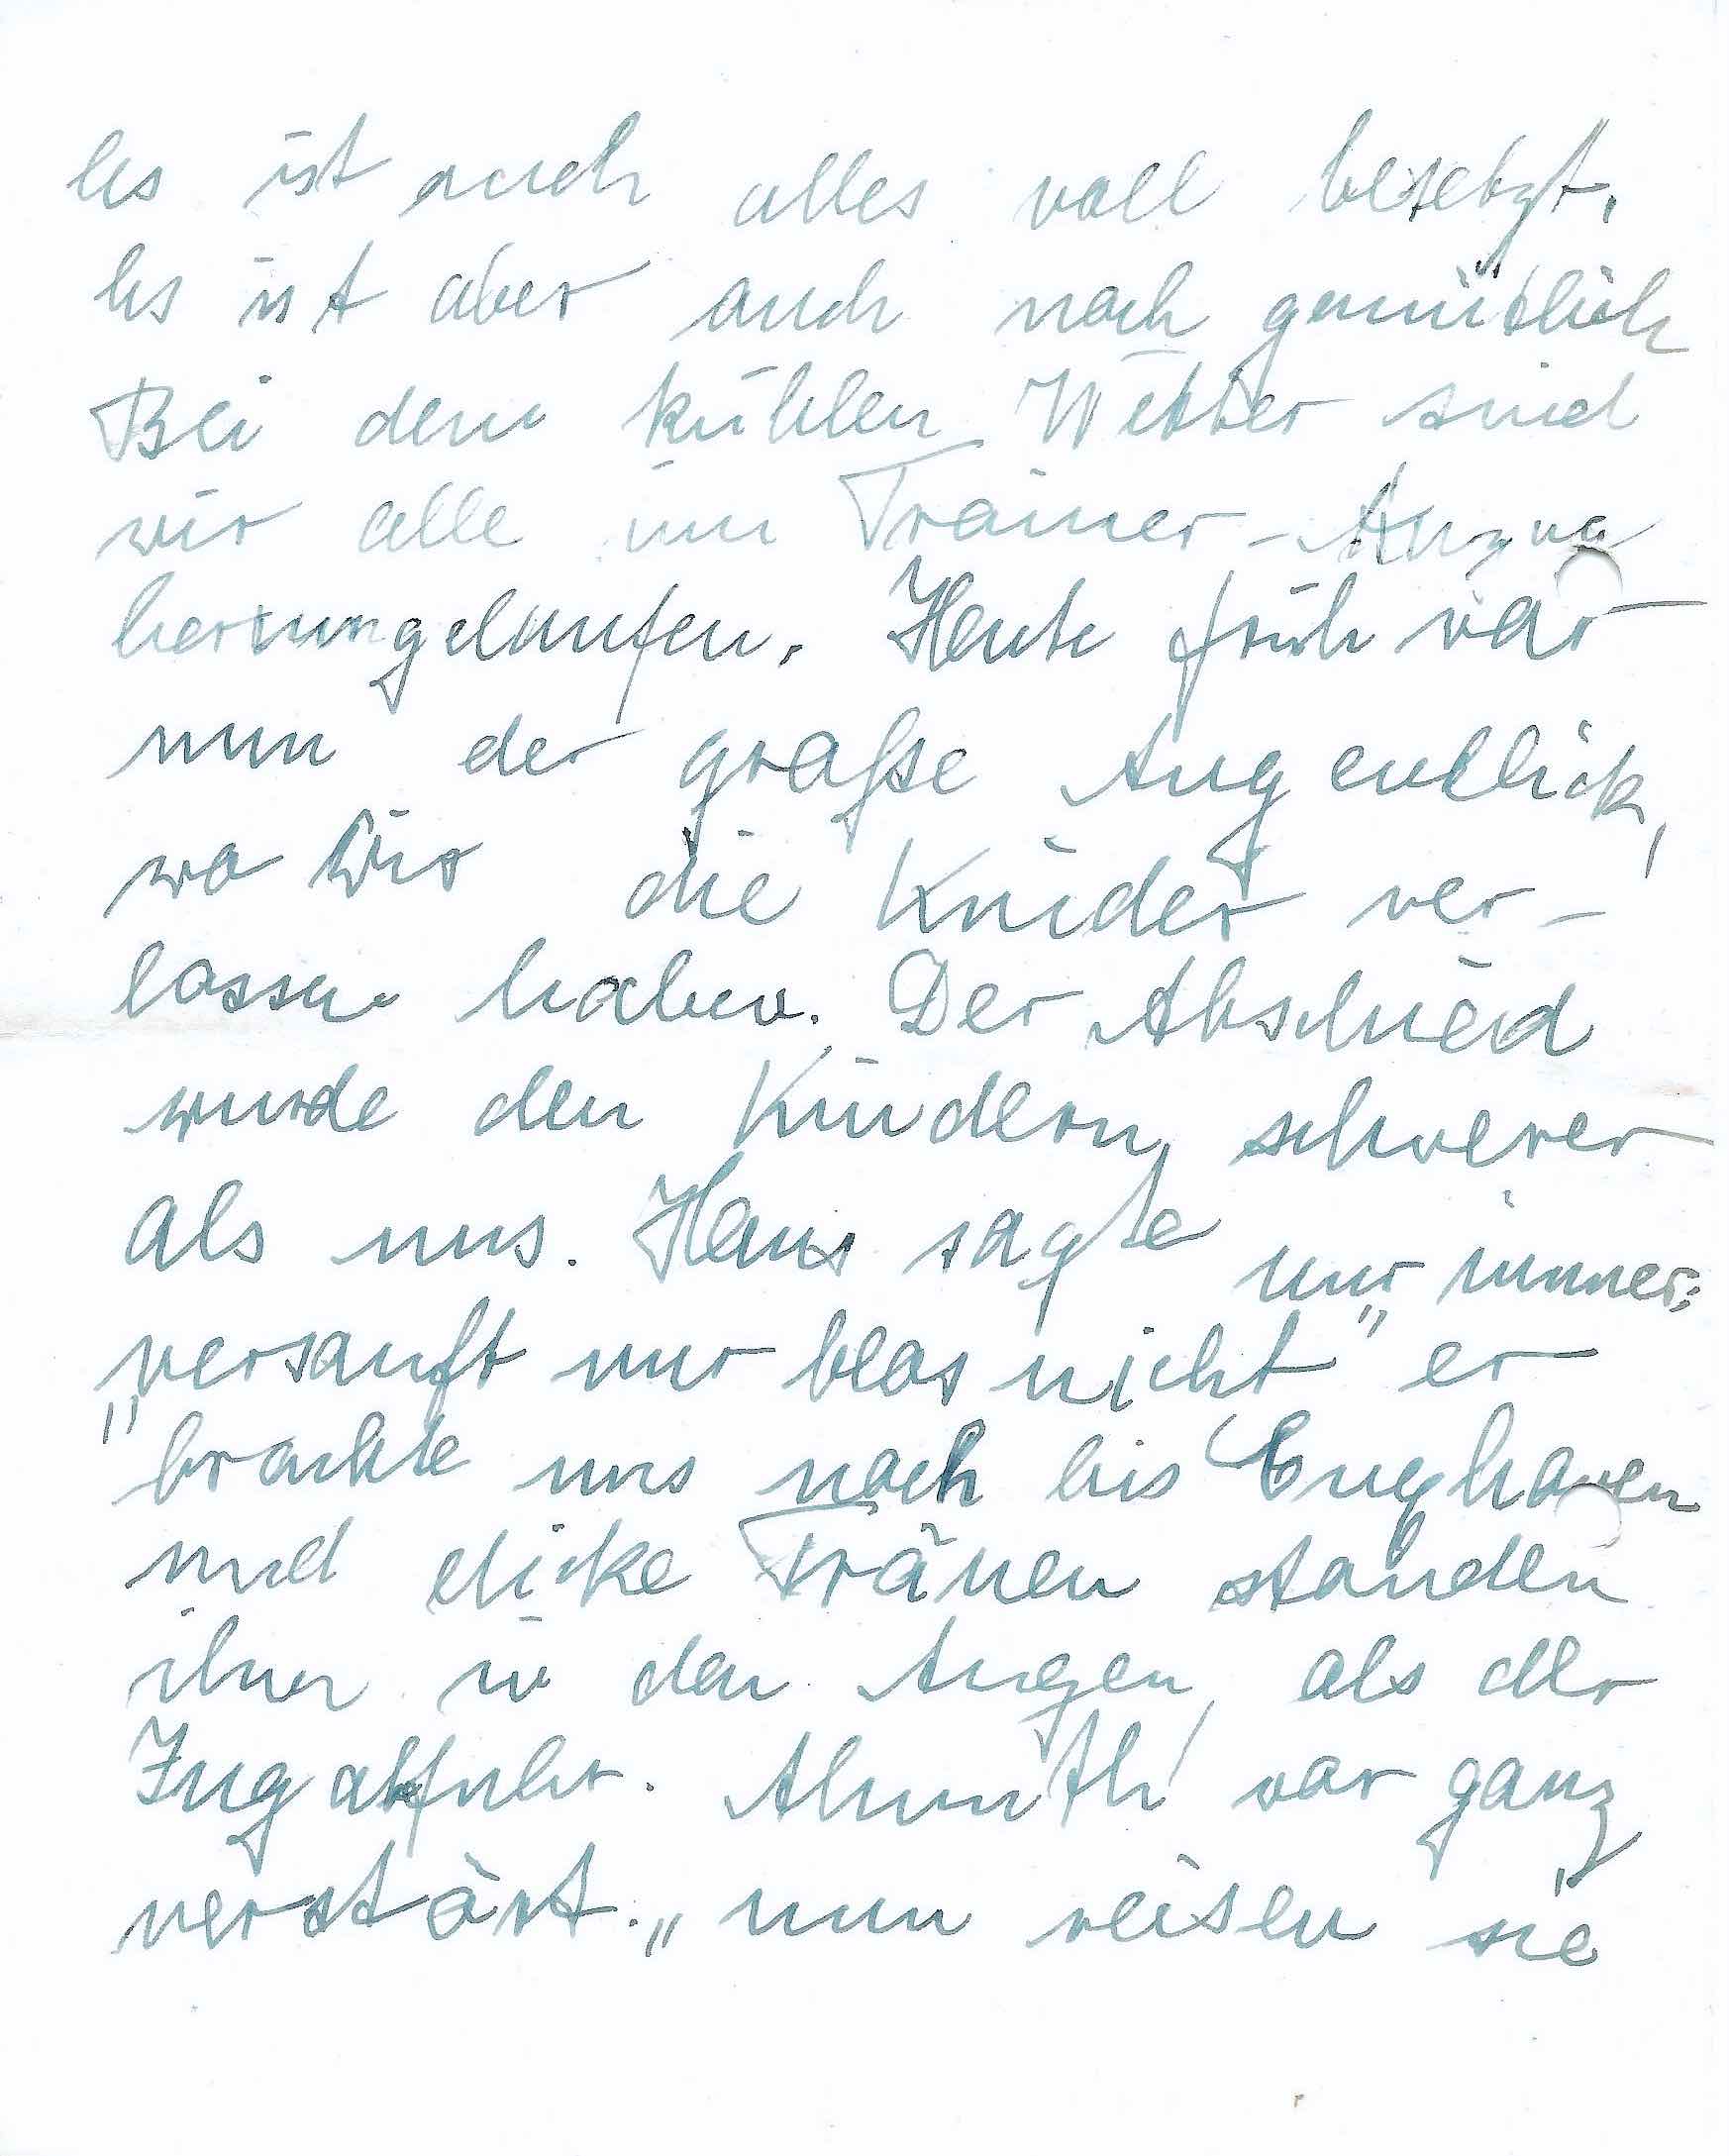 Es ist auch alles voll besetzt.
Es ist aber auch noch gemütlich
Bei dem kühlen Wetter sind
wir alle im Trainer-Anzug
herrumgelaufen. Heute früh war
nun der große Augenblick,
wo wir die Kinder ver-
lassen haben. Der Abschied
wurde den Kindern schwerer
als uns. Hans sagte nur immer:
"versauft nur blos nicht" er
brachte uns noch bis Cuxhaven
und dicke Tränen standen
ihm in den Augen, als der
Zug abfuhr. Almuth war ganz
verstört. "nun reisen sie